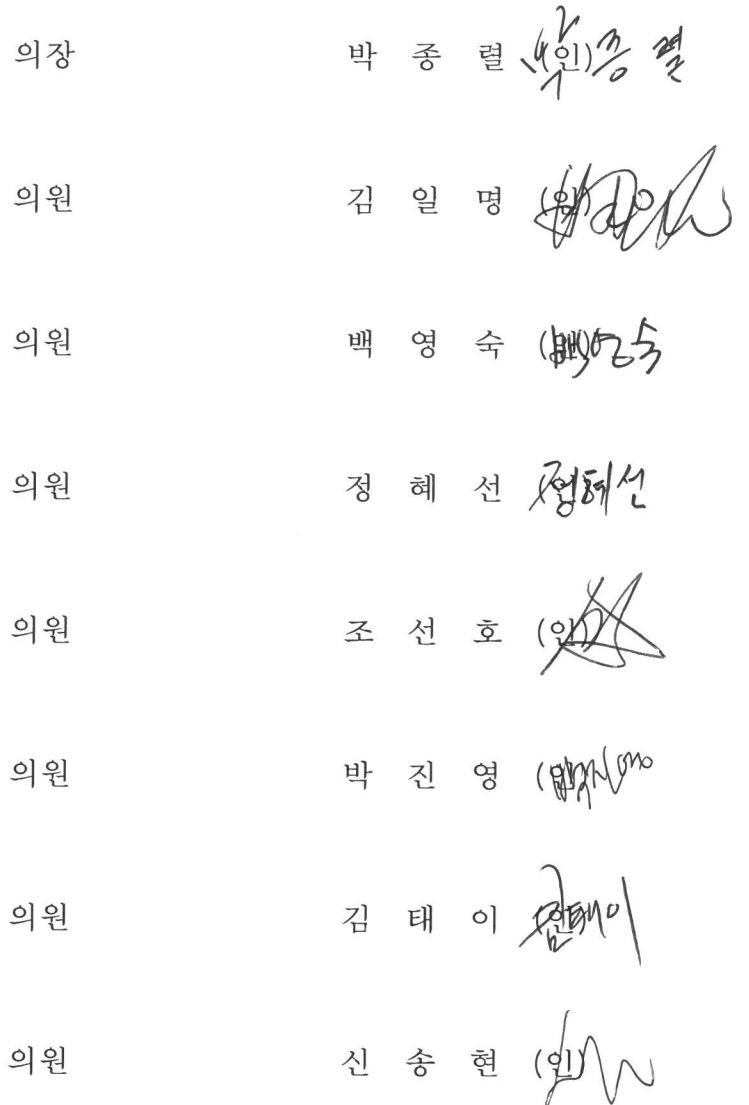 의장 박 종 렬 (인) 박종렬
의원 김 일 명 (인)
의원 백 영 숙 (인) 백영숙
의원 정 혜 선 (인) 정혜선
의원 조 선 호 (인)
의원 박 진 영 (인) 박진영
의원 김 태 이 (인) 김태이
의원 신 송 현 (인)